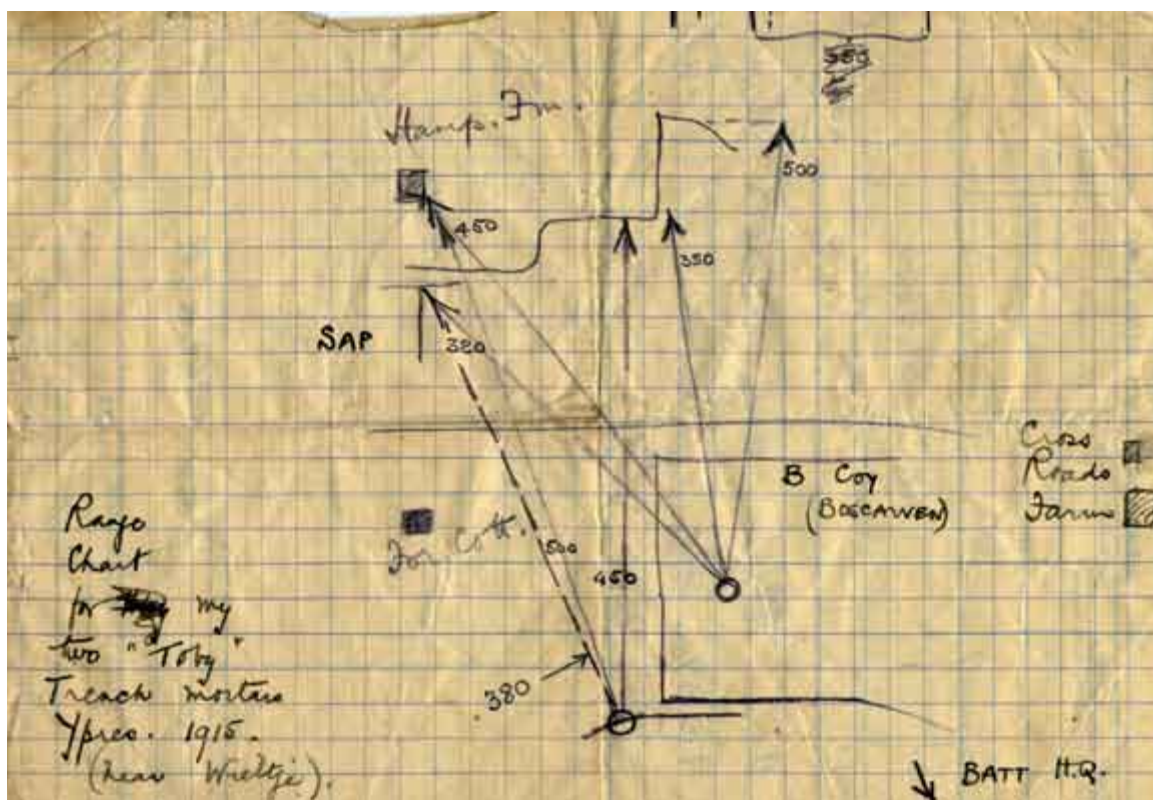 Hamp. Fm.
500
450
350
SAP
320
Cross
Roads
Farm
B Coy
(BOSCAWEN)
For. Cott.
500
450
Range
Chart
for my
two "Toby"
Trench mortars
Ypres. 1915.
(near Wieltje).
380
BATT H.Q.